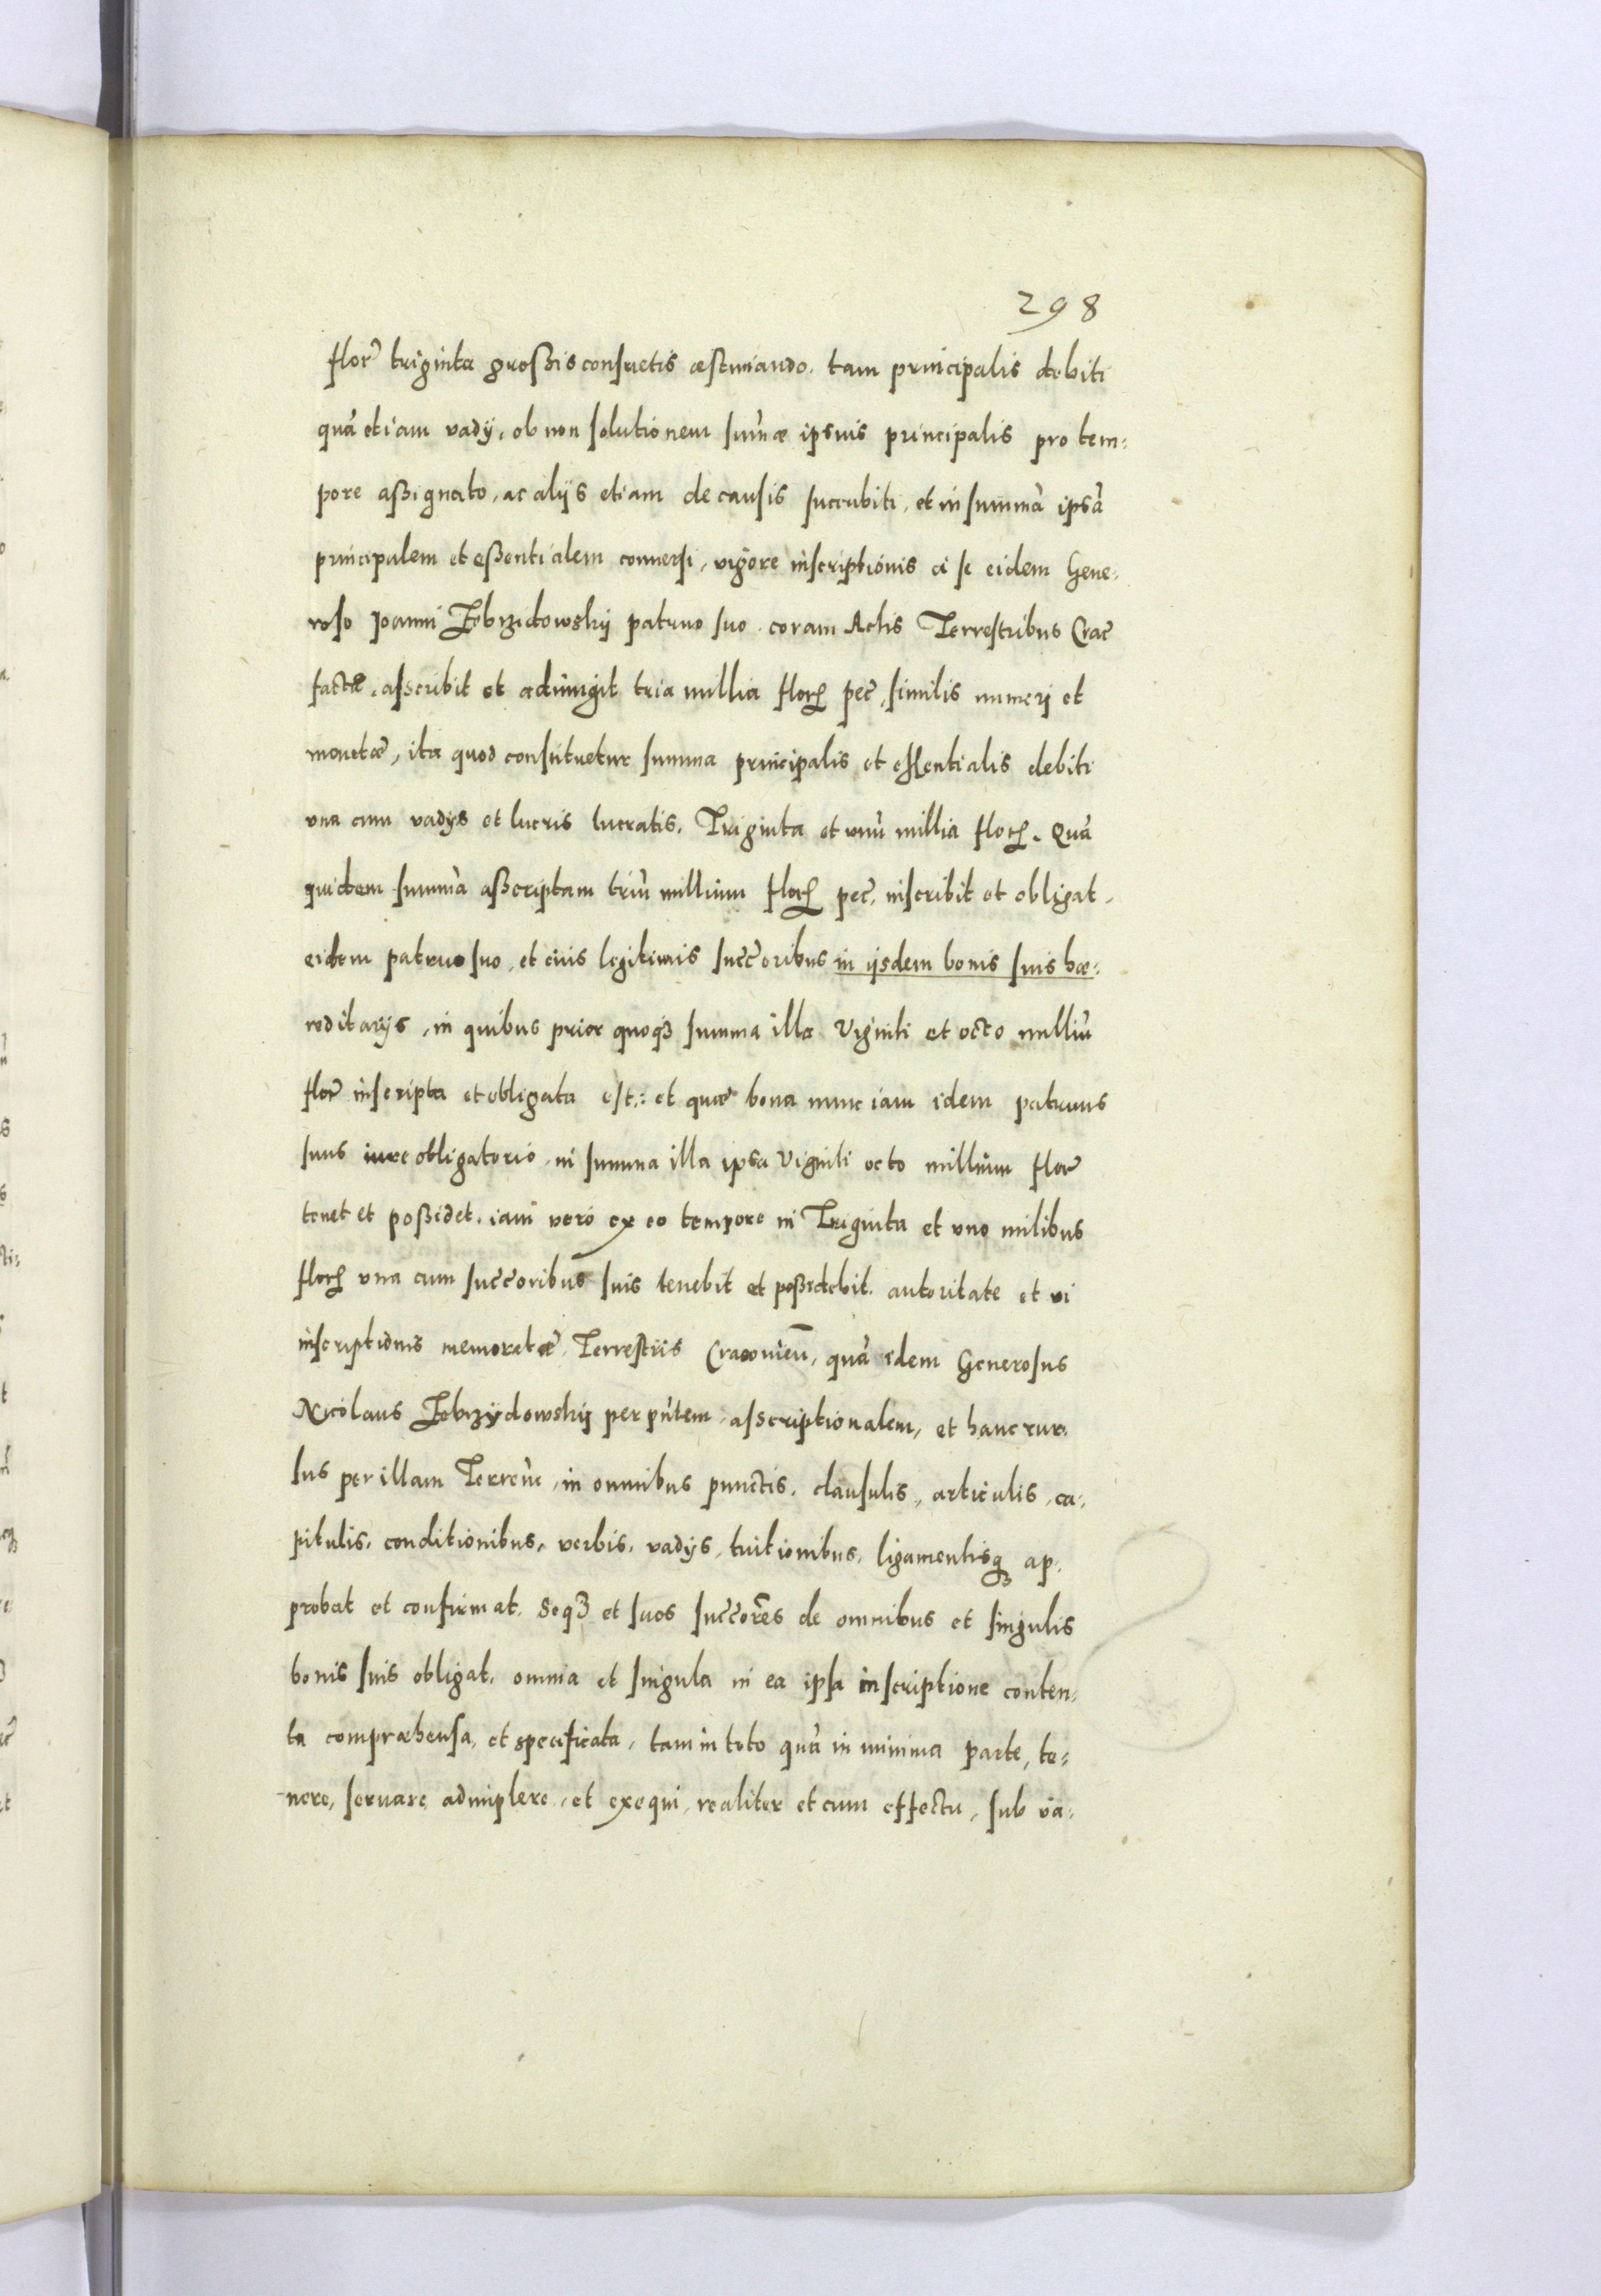 298
flor̃ triginta großis consuetis æstimando. tam principalis debiti
quã etiam vadÿ, ob non solutionem sum̃æ ipsius principalis pro tem:
pore aßignato, ac alÿs etiam de causis succubiti, et in summã ipsã
principalem et eßentialem conuersi, vigore inscriptionis a se eidem Gene:
roso Ioanni Zebrzidowskÿ patruo suo. coram Actis Terrestribus Crac̃
factæ, asscribit et adiungit tria millia floꝝ pec̃, similis numeri et
monetæ, ita quod constituetur summa principalis et essentialis debiti
vna cum vadÿs et lucris lucratis, Triginta et vnũ millia floꝝ. Quã
quidem summã aßcriptam triũ millium floꝝ pec̃, inscribit et obligat,
eidem patruo suo, et eius legitimis succ̃oribus in ÿsdem bonis suis hæ:
reditarÿs, in quibus prior quoqꝫ summa illa Viginti et octo milliũ
flor̃ inscripta et obligata est: et quæ bona nunc iam idem patruus
suus iure obligatorio, in summa illa ipsa Viginti octo millium flor̃
tenet et poßidet. iam vero ex eo tempore in Triginta et vno milibus
floꝝ vna cum succ̃oribus suis tenebit et poßidebit. autoritate et vi
inscriptionis memoratæ, Terrestris Cracouien̄, quã idem Generosus
Nicolaus Zebrzÿdowskÿ per pñtem asscriptionalem, et hanc rur:
sus per illam Terreñ, in omnibus punctis, clausulis, articulis, ca:
pitulis, conditionibus, verbis, vadÿs, tuitionibus, ligamentisqꝫ ap:
probat et confirmat. Seqꝫ et suos succ̃ores de omnibus et singulis
bonis suis obligat, omnia et singula in ea ipsa inscriptione conten:
ta compræhensa, et specificata, tam in toto quã in minima parte, te:
nere, seruare, adimplere, et exequi, realiter et cum effectu, sub va: